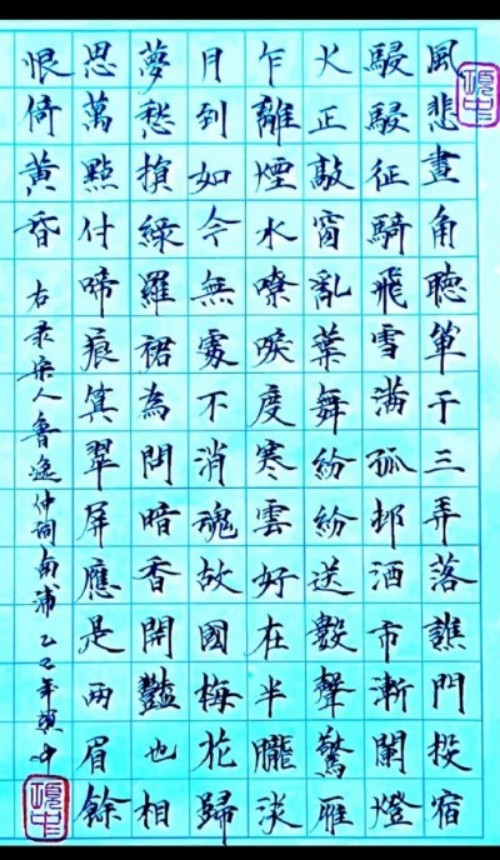 風悲畫角聽單于三弄落譙門投宿
駸駸征騎飛雪滿孤邨酒市漸闌燈
火正敲窗亂葉舞紛紛送數聲驚雁
乍離煙水嘹唳度寒雲好在半朧淡
月到如今無處不消魂故國梅花歸
夢愁損綠羅裙為問暗香閒豔也相
思萬點付啼痕算翠屏應是兩眉餘
恨倚黃昏
右录宋人魯逸仲詞南浦乙巳年項中
項中
項中